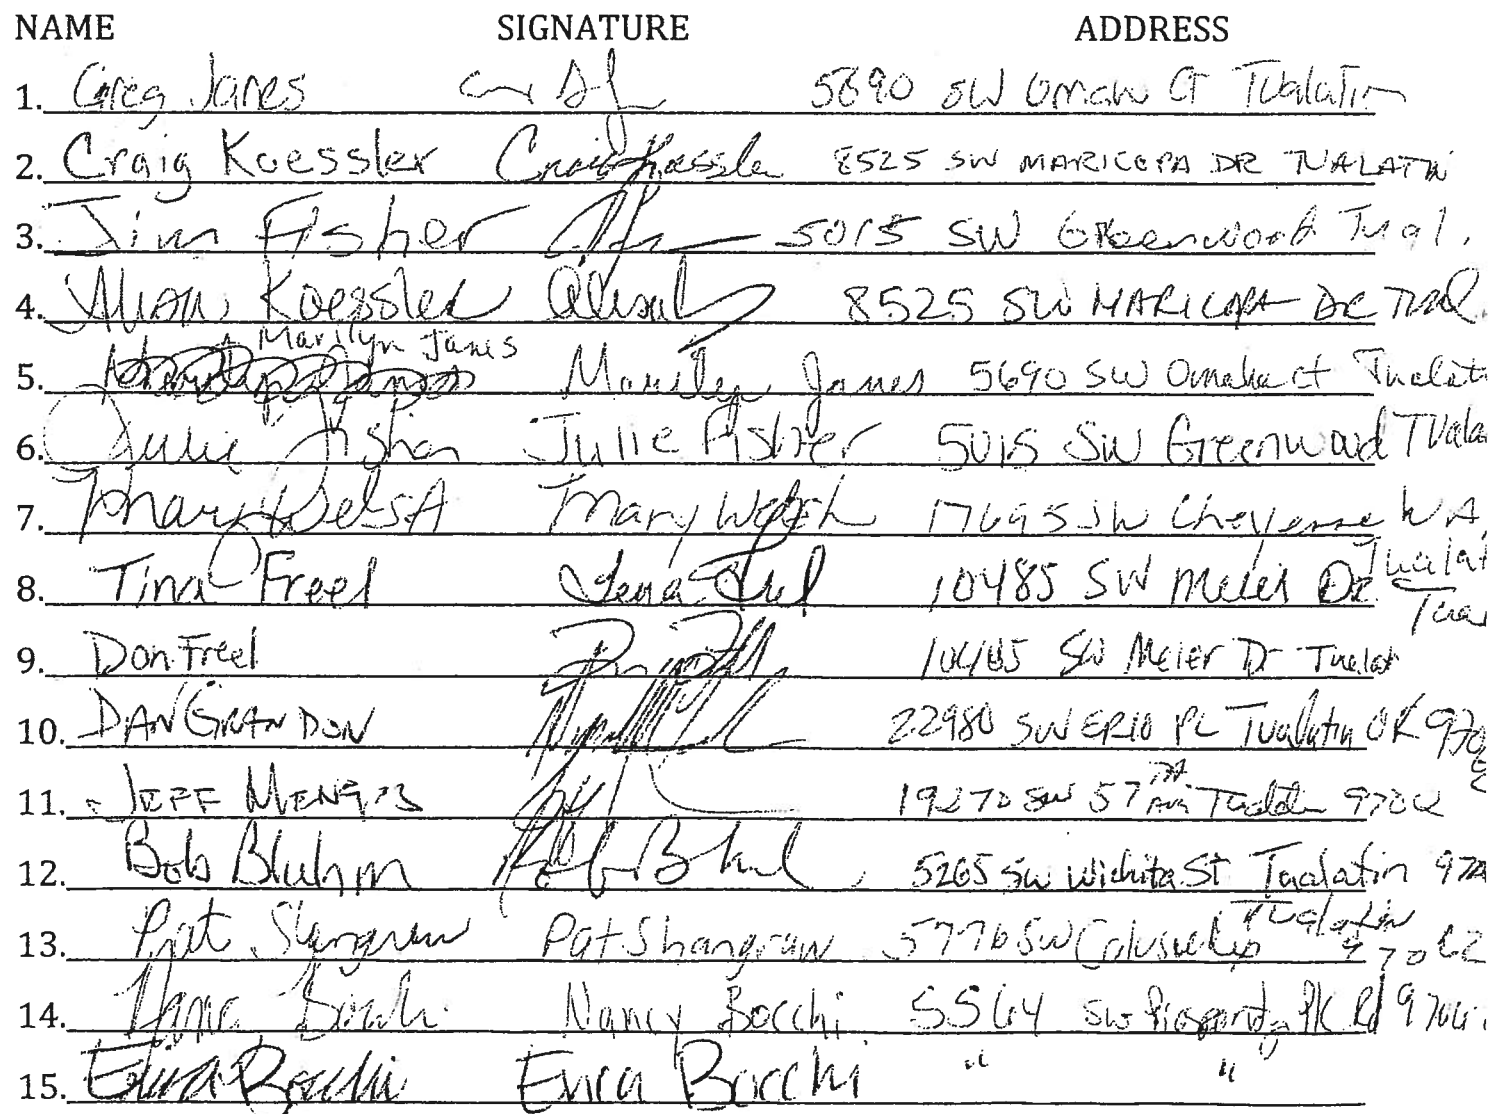 NAME SIGNATURE ADDRESS
1. Greg Janes 5690 SW Omaha Ct Tualatin
2. Craig Koessler Craig Koessler 8525 SW MARICOPA DR TUALATIN
3. Jim Fisher 5015 SW Greenwood Tual.
4. Alison Koessler Alison 8525 SW MARICOPA DR TUAL.
Marilyn Janes
5. Marilyn Janes 5690 SW Omaha ct Tualati
6. Julie Fisher Julie Fisher 5015 SW Greenwood Tuala
7. Mary Welsh Mary Welsh 17695 SW Cheyenne WA
Tualat
8. Tina Freel Tina Freel 10485 SW Meier Dr.
Tual
9. Don Freel 10485 SW Meier Dr Tualat
10. DAN GRANDON 22980 SW ERIO PL Tualatin OR 970
11. JEFF 19270 SW 57TH Ave 97062
12. Bob Bluhm 5265 SW Wichita St Tualatin 970
Tualatin
13. Pat Shangraw Pat Shangraw 5776 SW 97062
14. Nancy Bocchi Nancy Bocchi 5564 SW Prosperity Pk Rd 9706
15. Erica Bocchi Erica Bocchi " "